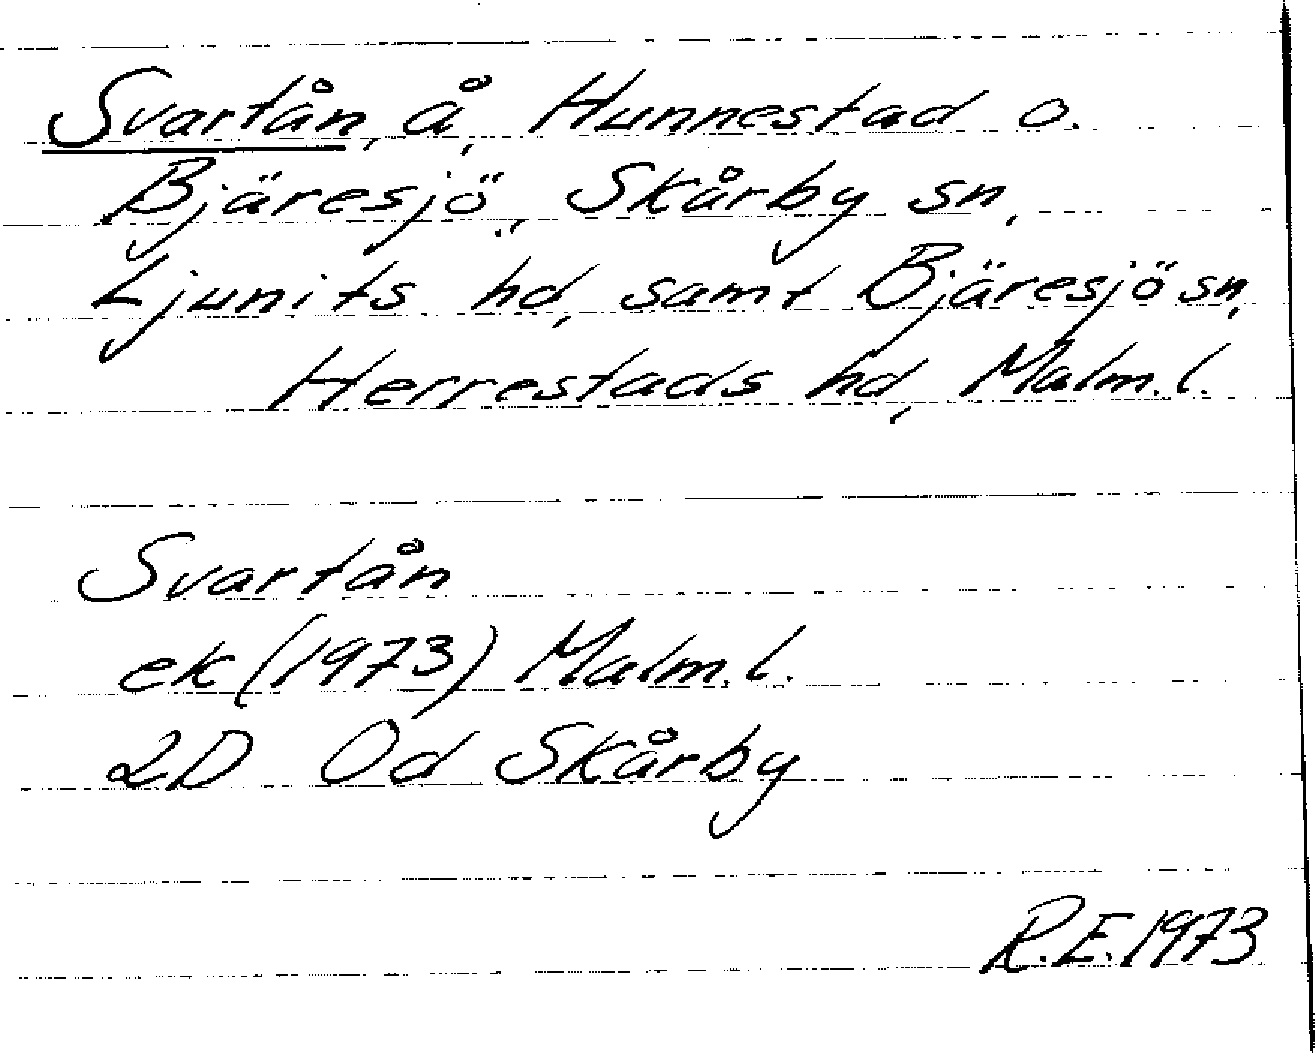 Svartån, å, Hunnestad o.
Bjäresjö, Skårby sn,
Ljunits hd, samt Bjäresjö sn,
Herrestads hd, Malm.l.
Svartån
ek (1973) Malm.l.
2D Od Skårby
R.E. 1973